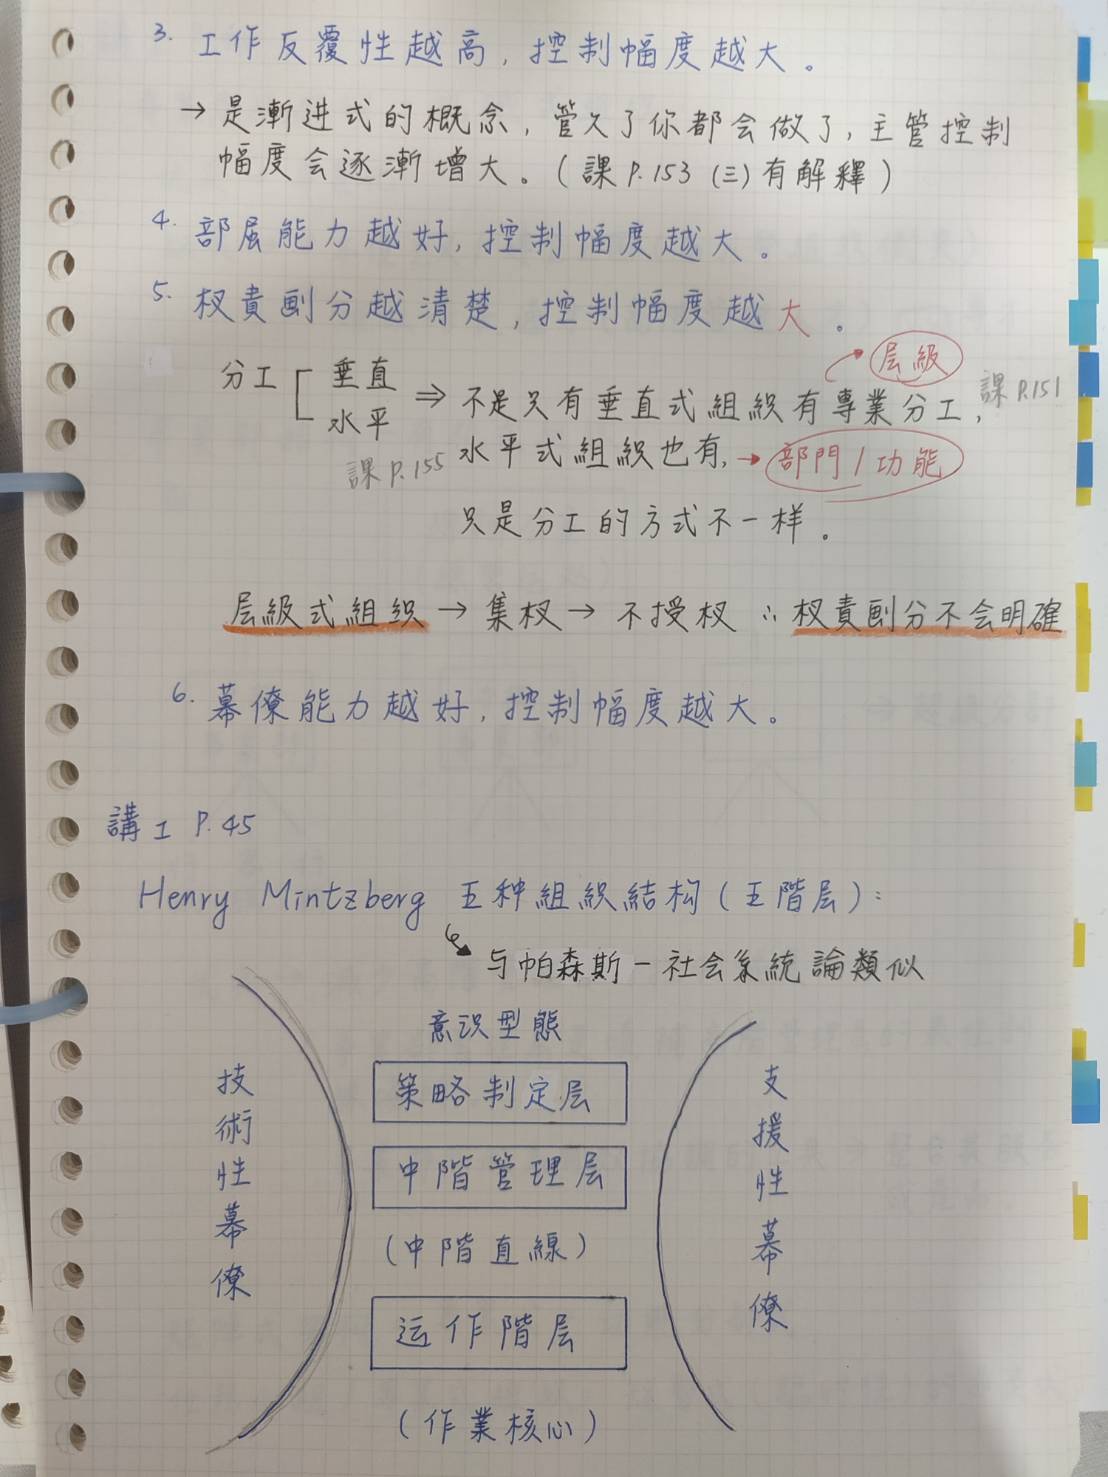 3. 工作反覆性越高, 控制幅度越大。
→ 是漸进式的概念, 管久了你都会做了, 主管控制
幅度会逐漸增大。(課 P.153 (三) 有解釋)
4. 部属能力越好, 控制幅度越大。
5. 权責劃分越清楚, 控制幅度越大。
层級
分工 垂直 ⇒ 不是只有垂直式組織有專業分工, 課 P.151
水平
課 P.155 水平式組织也有, → 部門/功能
只是分工的方式不一样。
层級式組织 → 集权 → 不授权 ∴ 权責劃分不会明確
6. 幕僚能力越好, 控制幅度越大。
講工 P.45
Henry Mintzberg 五种組织結构(五階层):
与帕森斯-社会系統論類似
意识型態
策略制定层
中階管理层
(中階直線)
运作階层
(作業核心)
技術性幕僚
支援性幕僚